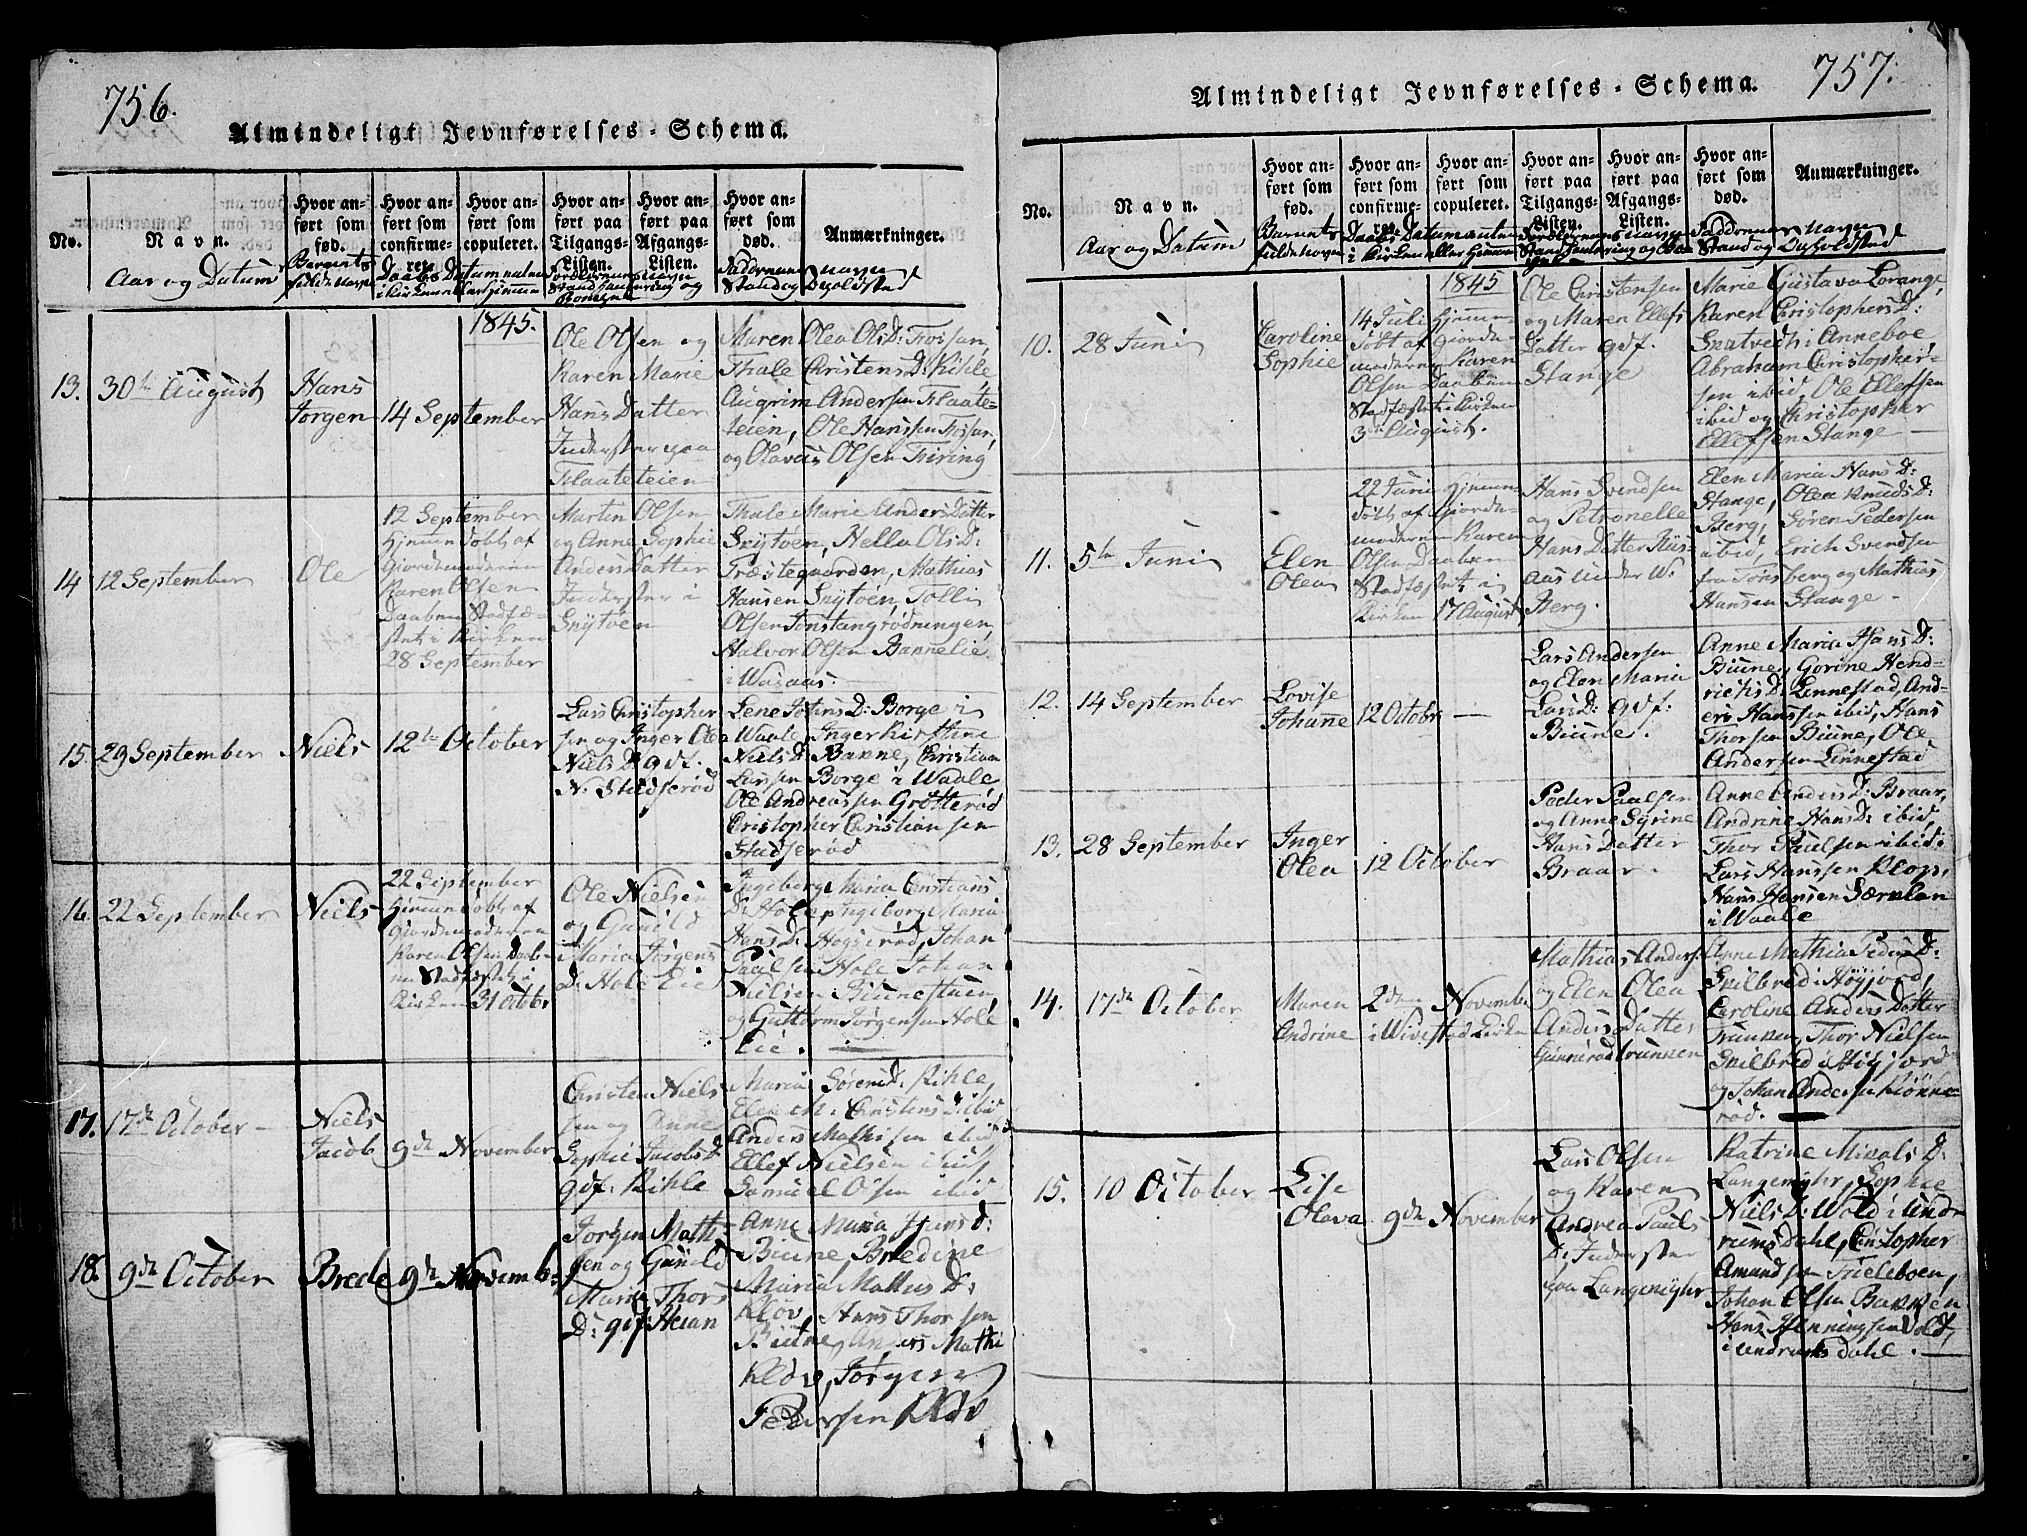 756.
Almindeligt Jevnførelses-Schema.
No.
Navn.
Aar og Datum
Hvor an-
ført som
fød.
Barnets
fulde Navn
Hvor an-
ført som
confirme-
ret.
Hvor an-
ført som
copuleret.
Daabs Datum enten
i Kirken eller Hjemme
Hvor an-
ført paa
Tilgangs-
Listen.
Hvor an-
ført paa
Afgangs-
Listen.
Forældrenes Navn
Stand Handtering og
Boepæl
Hvor an-
ført som
død.
Anmærkninger.
Faddernes Navn
Stand og Opholdsted
1845.
13.
30te August
Hans
Jørgen
14 September
Ole Olsen og
Karen Marie
Hans Datter
Inderster paa
Flaateteien
Maren Olea Ols D:
Thale Christens D: Kihle
Augrim Andersen Flaate-
teien, Ole Hanssen
og Olavus Olsen Firing
14
12 September
Ole
12 September
Hjemmedøbt af
Giordemoderen
Karen Olsen
Daaben Stadfæ-
stet i Kirken
28 September
Martin Olsen
og Anne Sophie
Anders Datter
Inderster i
Snÿtøen
Thale Marie Anders Datter
Snÿtøen, Hella Ols D:
Præstegaarden, Mathias
Hansen Snÿtøen, Tollif
Olsen Tonstangrødningen
Halvor Olsen Bannelie
i Waaas.
15.
29 September
Niels
12te October
Lars Christopher
sen og Inger Olea
Niels D gdf.
N. Stadserød
Lene Johns D: Borge i
Waale, Inger Kirstine
Niels D: Banne, Christian
Larssen Borge i Waale
Ole Andreassen Grotterød
Christopher Christiansen
Stadserød
16.
22 September
Niels
22 September
Hjemmedøbt af
Giordemoderen
Karen Olsen Daab-
en Stadfæstet i
Kirken 31 Octbr
Ole Nielsen
og Gunild
Maria Jørgens
D: Hole Eie
Ingeborg Maria Christians
D: Hole, Ingeborg Maria
Hans D: Hogserød, Johan
Paalsen Hole Johan
Nielsen Biunestuen
og Guttorm Jørgensen Hole
Eie.
17.
17de October
Niels
Jacob
9de November
Christen Niels
sen og Anne
Sophie Jacobs D
gdf. Kihle
Maria Sørens D: Kihle,
Elen M: Christens D: ibid
Anders Mathisen ibid
Ellef Nielsen ibid
Samuel Olsen ibid
18.
9de October
Brede
9de Novemb:
Jørgen Math
sen og Gunild
Maria Thors
D: gdf. Heian
Anne Maria Hans D:
Biune Bredine
Maria Mathis D:
Kløv, Hans Thorsen
Biune, Anders Mathi
Kløv, Jørgen
Pedersen Kløv
757.
Almindeligt Jevnførelses-Schema.
No.
Navn.
Aar og Datum
Hvor an-
ført som
fød.
Barnets
fulde Navn
Hvor an-
ført som
confirme-
ret.
Hvor an-
ført som
copuleret.
Daabs Datum enten
i Kirken eller Hjemme
Hvor an-
ført paa
Tilgangs-
Listen.
Hvor an-
ført paa
Afgangs-
Listen.
Forældrenes Navn
Stand Handtering og
Hvor an-
ført som
død.
Anmærkninger.
Faddernes Navn
Stand og Opholdsted
1845
10.
28 Juni
Caroline
Sophie
14 Juli Hjemme-
døbt af Giorde-
moderen Karen
Olsen Daaben
Stadfæstet i Kirken
3de August.
Ole Christensen
og Maren Ellefs
Datter gdf.
Stange
Marie Gustava Lorange,
Karen Christophers D:
Snatvedt i Anneboe,
Abraham Christopher-
sen ibid, Ole Ellefsen
ibid og Christopher
Ellefsen Stange
11.
5te Juni
Elen
Olea
22 Juni Hjemme-
døbt af Giorde-
moderen Karen
Olsen Daaben
Stadfæstet i
Kirken 17 August
Hans Svendsen
og Petronelle
Hans Datter Huus-
aas under W.
Berg.
Elen Maria Hans D:
Stange, Olea Knuds D:
Berg, Søren Pedersen
ibid, Erich Svendsen
fra Tønsberg og Mathias
Hansen Stange
12.
14 September
Lovise
Johanne
12 Octobr
Lars Andersen
og Elen Maria
Lars D: gdf:
Biune.
Anne Maria Hans D:
Biune, Gorine Hend-
richs D: Linnestad, And-
ers Hanssen ibid, Hans
Thorsen Biune, Ole
Andersen Linnestad
13.
28 September
Inger
Olea
12 October
Peder Paalsen
og Anne Syrine
Hans Datter
Braar.
Anne Anders D: Braar,
Andrine Hans D: ibid,
Thor Paulsen ibid:
Lars Hanssen Klop,
Hans Hansen Særelen
i Waale
14.
17de October
Maren
Andrine
2den November
i Wivestad Kirke
Mathias Anders
og Elen Olea
Anders Datter
Gunnerød
Anne Mathia Peders D:
Snilbred i Høyjord,
Caroline Anders Datter
Trunsen, Thor Nielsen
Snilbred i Høyjord
og Johan Andersen Rønne-
rød.
15.
10 October
Lise
Olava
9de November
Lars Olsen
og Karen
Andrea Pauls
D: Inderster
paa Langenÿhr
Katrine Nicols D:
Langenÿhr, Sophie
Niels D: Wold i Und-
rums Dahl, Christopher
Amundsen Trieleboen,
Johan Olsen Bakken
Hans Henningsen Vold,
i Undrums dahl.